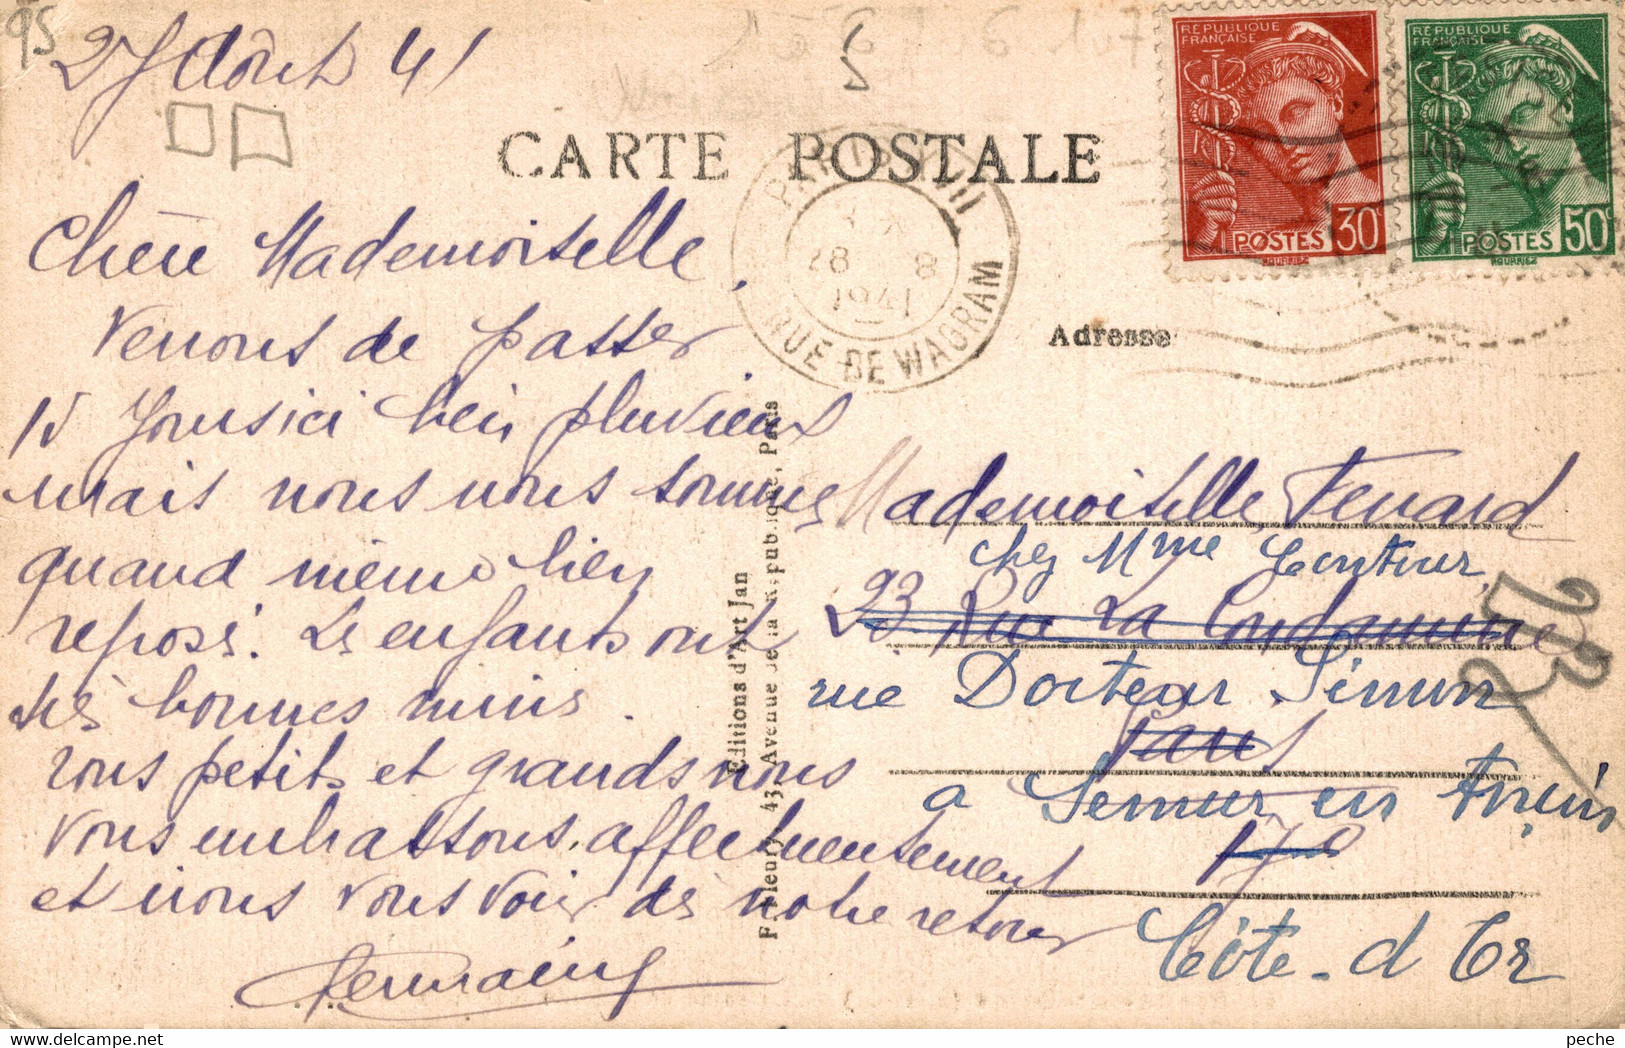 95
27 Août 41
CARTE POSTALE
RÉPUBLIQUE FRANÇAISE
POSTES 30c
RÉPUBLIQUE FRANÇAISE
POSTES 50c
PARIS XVII
28 8
1941
RUE DE WAGRAM
Adresse
Chère Mademoiselle,
Venons de passer
15 Jours ici bien pluvieux
mais nous nous sommes
quand même bien
reposé. Les enfants ont
très bonnes mines.
Tous petits et grands nous
vous embrassons affectueusement
et irons vous voir dès notre retour
Germaine
Editions d'Art Jan
F. Fleury, 43, Avenue de la République, Paris
Mademoiselle Fenard
chez Mme Contour
23 Rue La Condamine
rue Docteur Simon
Paris
à Semur en Auxois
17e
Côte-d'Or
peche